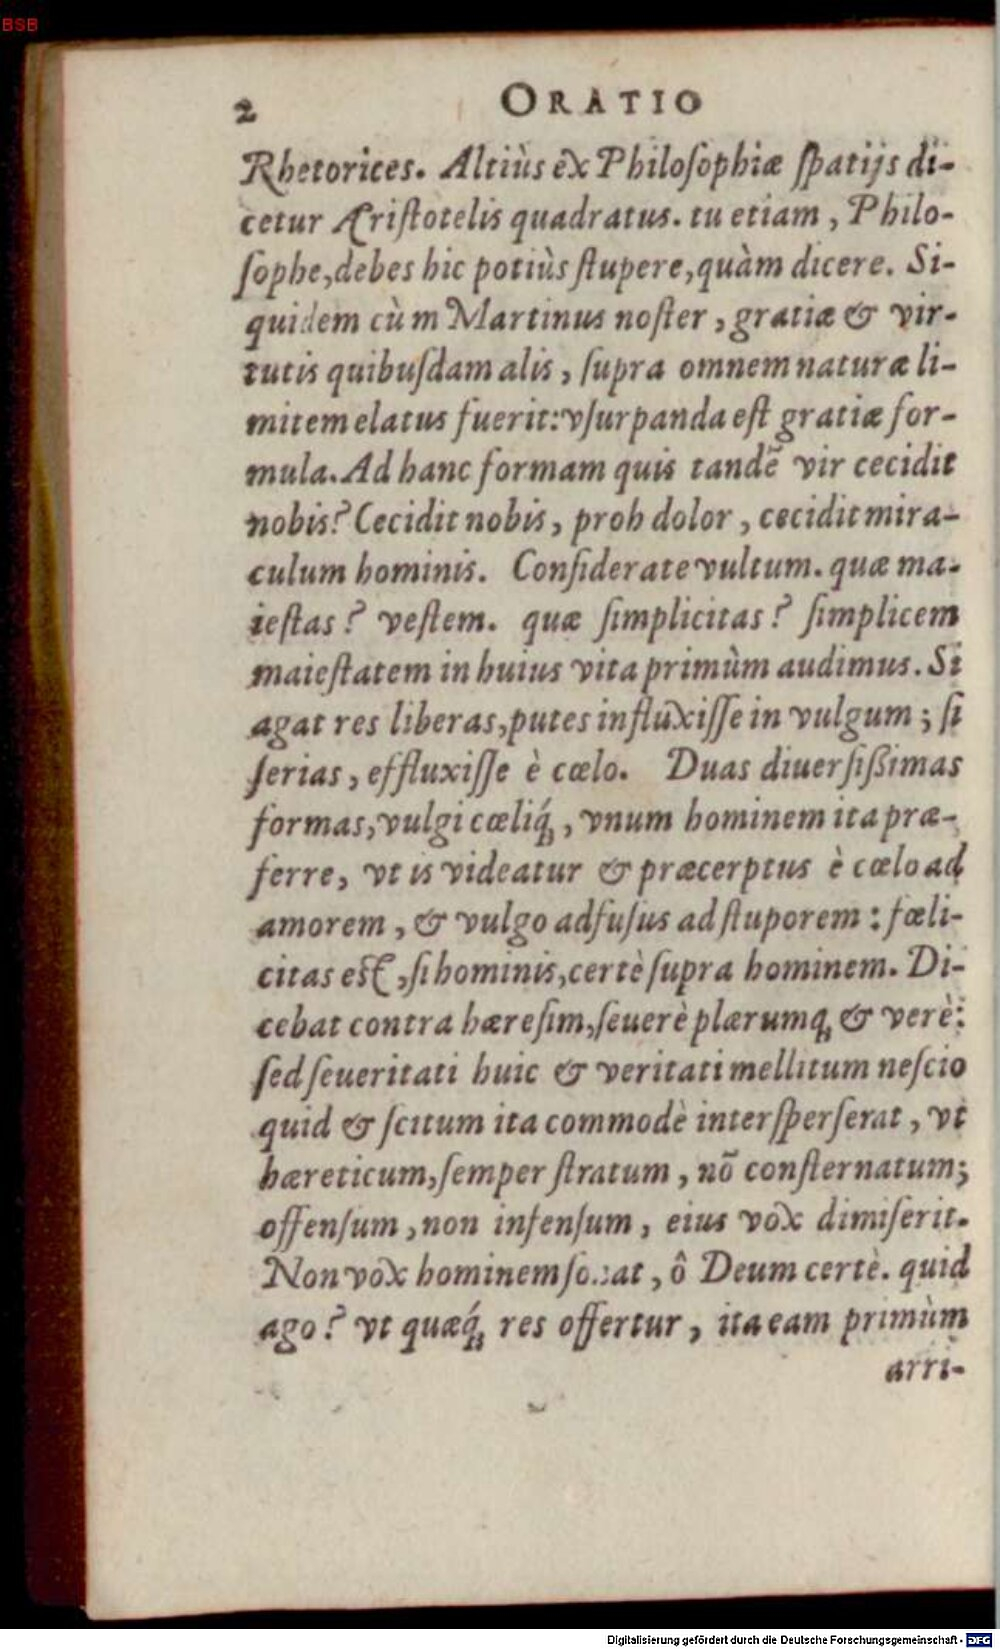 BSB
2 ORATIO
Rhetorices. Altiùs ex Philoſophiæ ſpatijs di-
cetur Ariſtotelis quadratus. tu etiam, Philo-
ſophe, debes hic potiùs ſtupere, quàm dicere. Si-
quidem cùm Martinus noſter, gratiæ & vir-
tutis quibuſdam alis, ſupra omnem naturæ li-
mitem elatus fuerit: vſurpanda eſt gratiæ for-
mula. Ad hanc formam quis tandẽ vir cecidit
nobis? Cecidit nobis, proh dolor, cecidit mira-
culum hominis. Conſiderate vultum. quæ ma-
ieſtas? veſtem. quæ ſimplicitas? ſimplicem
maieſtatem in huius vita primùm audimus. Si
agat res liberas, putes influxiſſe in vulgum; ſi
ſerias, effluxiſſe è cœlo. Duas diuerſißimas
formas, vulgi cœliq́;, vnum hominem ita præ-
ferre, vt is videatur & præcerptus è cœlo ad
amorem, & vulgo adfuſus ad ſtuporem: fœli-
citas eſt, ſi hominis, certè ſupra hominem. Di-
cebat contra hæreſim, ſeuerè plærumq; & verè:
ſed ſeueritati huic & veritati mellitum neſcio
quid & ſcitum ita commodè interſperſerat, vt
hæreticum, ſemper ſtratum, nõ conſternatum;
offenſum, non infenſum, eius vox dimiſerit.
Non vox hominem ſonat, ô Deum certè. quid
ago? vt quæq́; res offertur, ita eam primùm
arri-
Digitalisierung gefördert durch die Deutsche Forschungsgemeinschaft - DFG